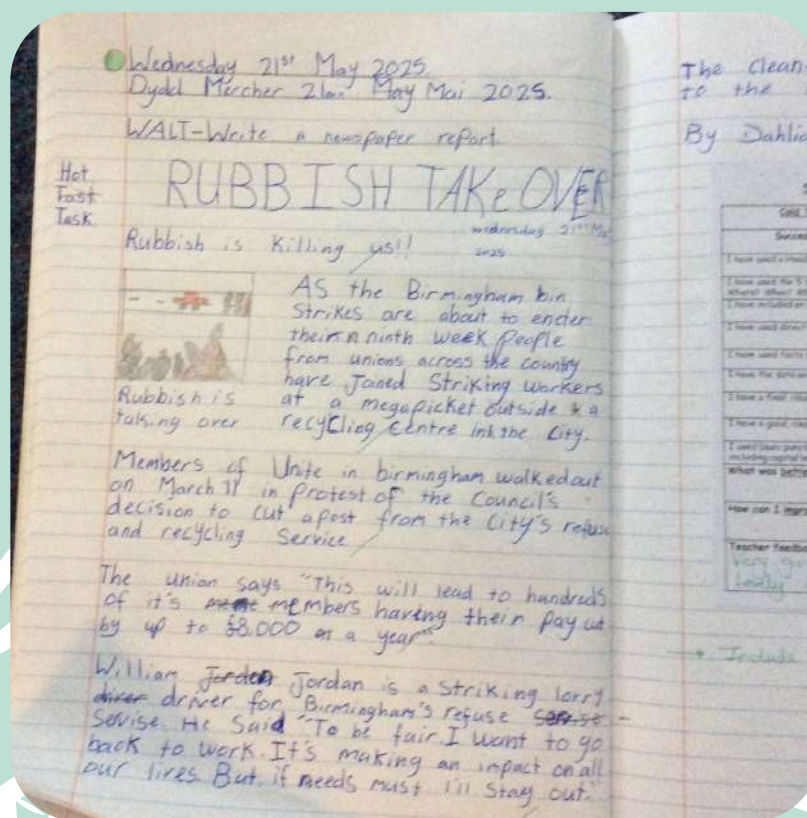 Wednesday 21st May 2025.
Dydd Mercher 21ain May Mai 2025.
WALT-Write a newspaper report.
Hot
Fast
Task
RUBBISH TAKeOVER
wednesday 21st May
2025
Rubbish is Killing us!!
AS the Birmingham bin
Strikes are about to ender
their ninth week People
from unions across the country
have Joined Striking workers
at a megapicket outside a
recycling centre in the City.
Rubbish is
taking over
Members of Unite in birmingham walked out
on March 11 in Protest of the Council's
decision to cut a post from the City's refuse
and recycling Service
The union says "This will lead to hundreds
of it's members having their pay cut
by up to £8,000 a year".
William Jordan is a Striking lorry
driver for Birmingham's refuse
Servise. He Said "To be fair I want to go
back to work. It's making an impact on all
our lives. But if needs must I'll Stay out."
The Clean-
to the
By Dahlia
Success
I have used the 5
What was
How can I
Teacher feedba
Very go
→ Include